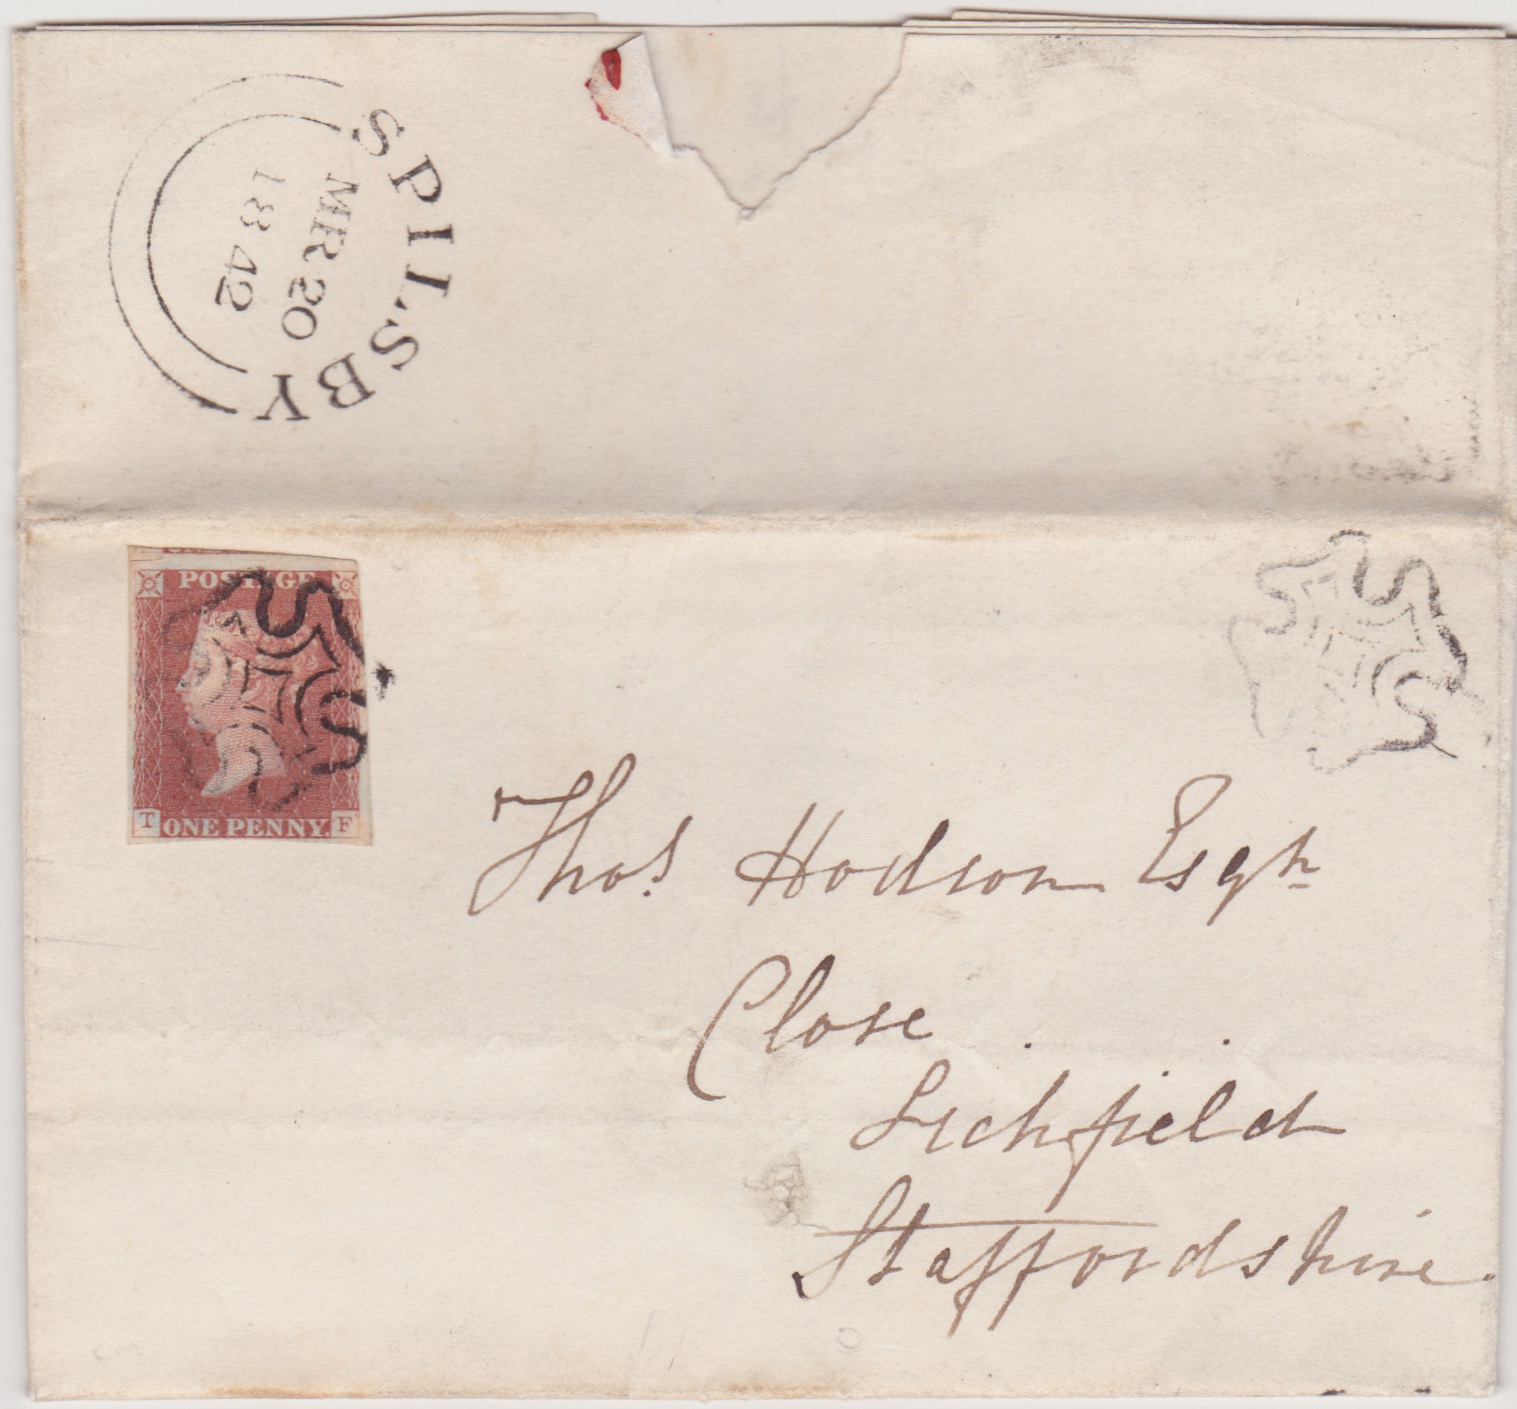 SPILSBY
MR 20
1842
POSTAGE
T ONE PENNY. F
Thos. Hodson Esqr
Close
Lichfield
Staffordshire.